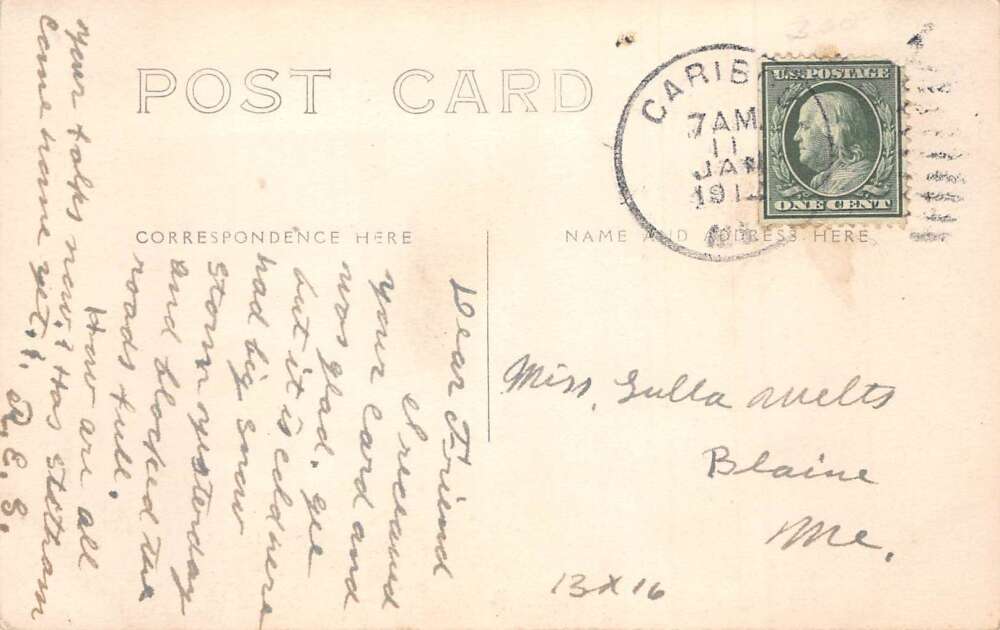 POST CARD
CARIB
7 AM
11
JAN
191
U.S. POSTAGE
ONE CENT
CORRESPONDENCE HERE
NAME AND ADDRESS HERE
Dear Friend
I received
your card and
was glad. gee
but it is cold here
had big snow
storm yesterday
and blocked the
roads full.
How are all
your folks now. Has
come home yet.
R. E. S.
Miss.
Blaine
Me.
13 X 16